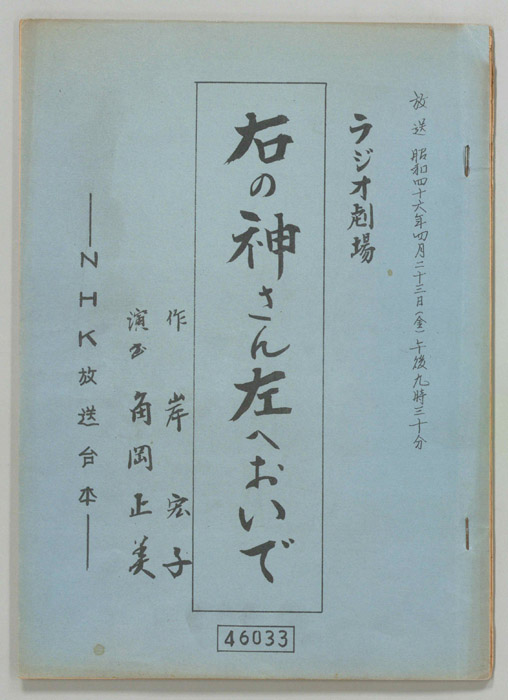 放送 昭和四十六年四月二十三日(金)午後九時三十分
ラジオ劇場
右の神さん左へおいで
作 岸 宏子
演出 角岡正美
NHK放送台本
46033